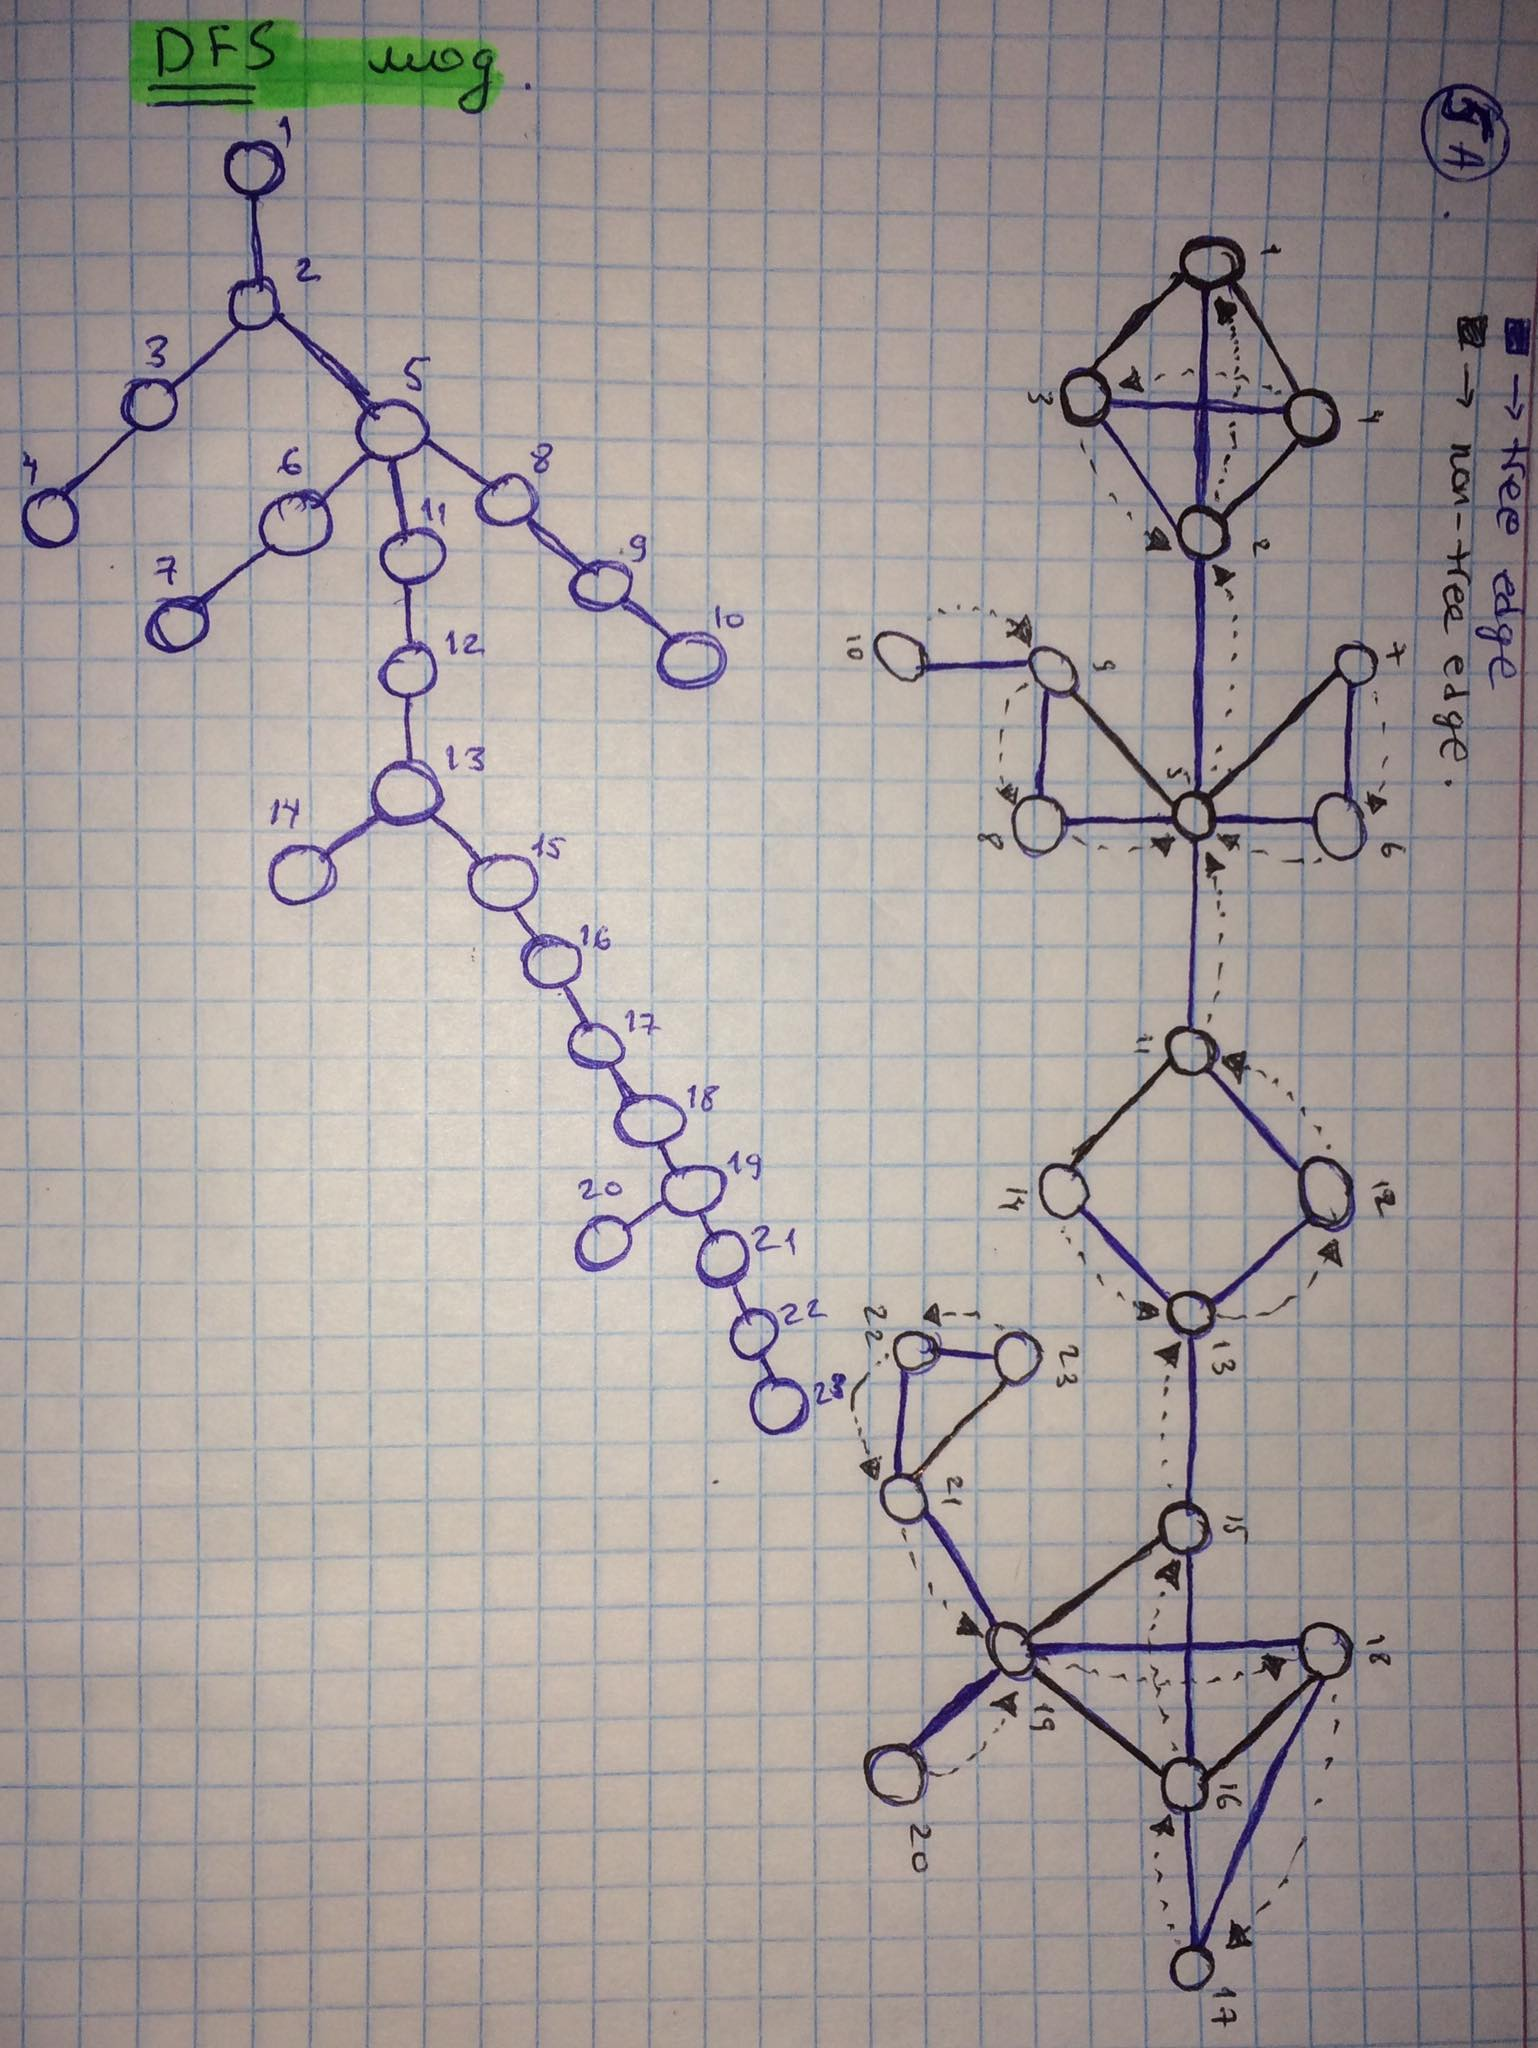 DFS мод.
1
2
3
5
4
6
8
7
11
9
10
12
13
14
15
16
17
18
19
20
21
22
23
5A.
→ tree edge
→ non-tree edge.
1
3
4
2
10
9
7
5
8
6
11
14
12
13
22
23
21
15
19
18
16
20
17